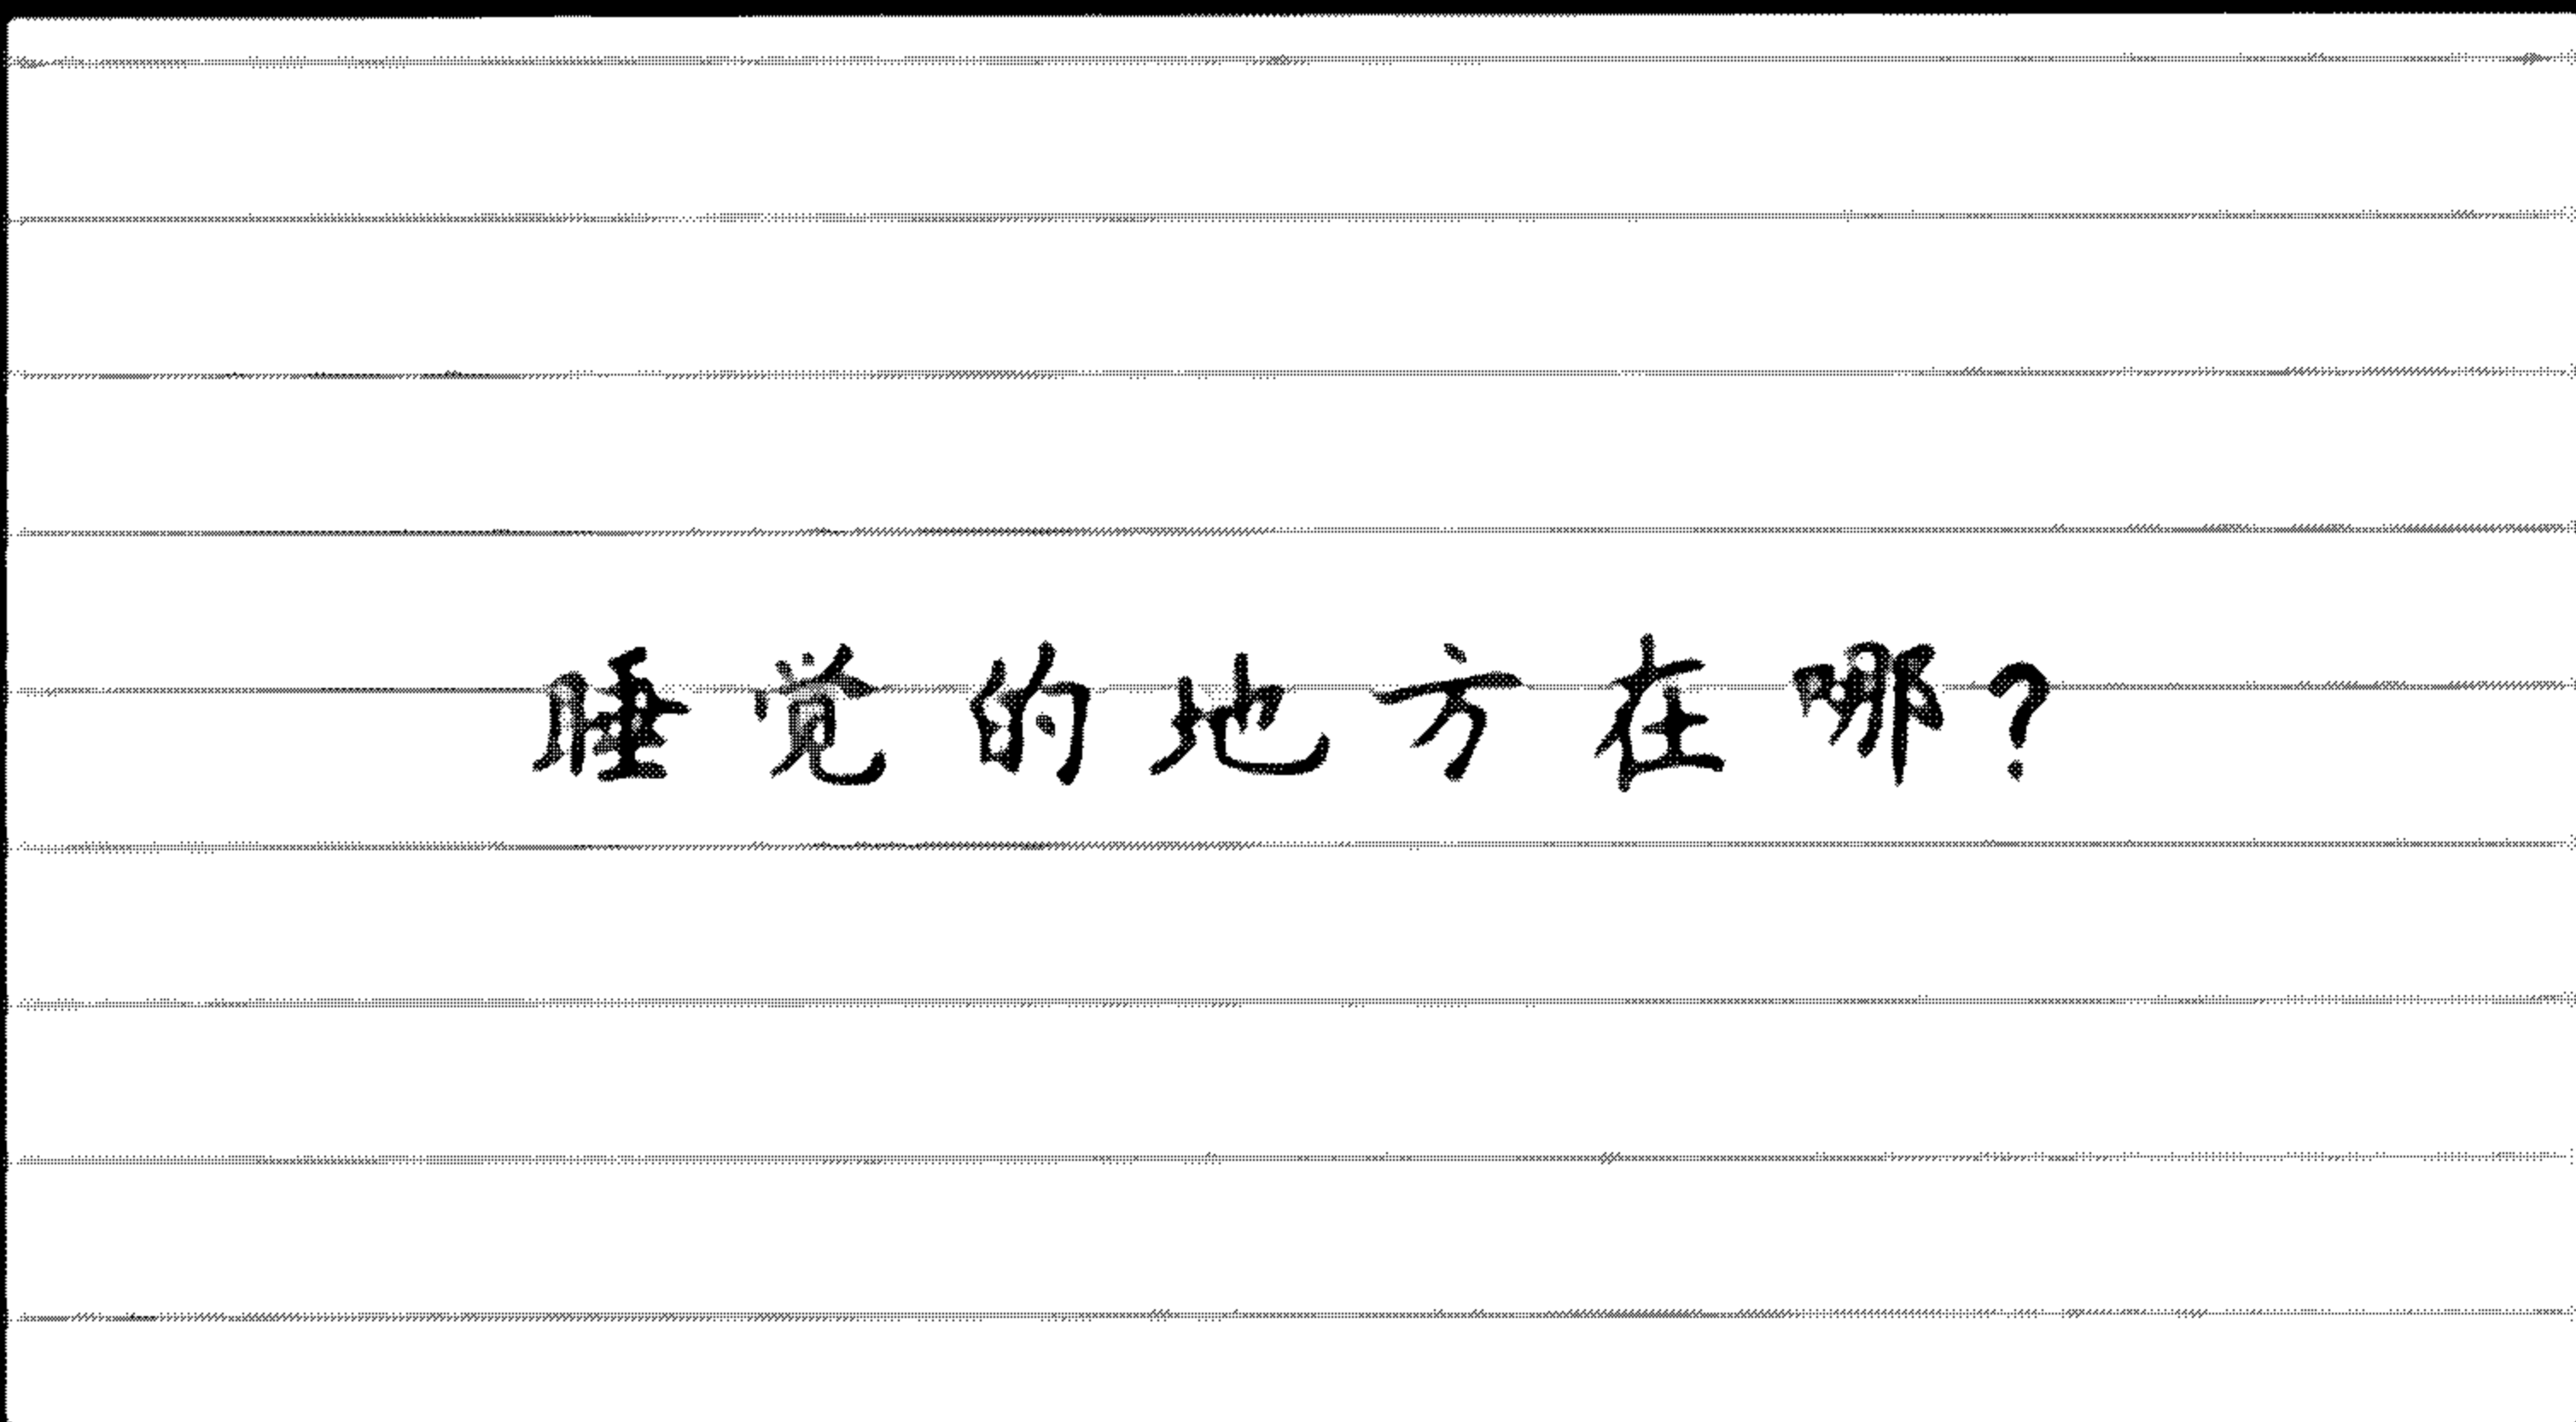 睡觉的地方在哪?